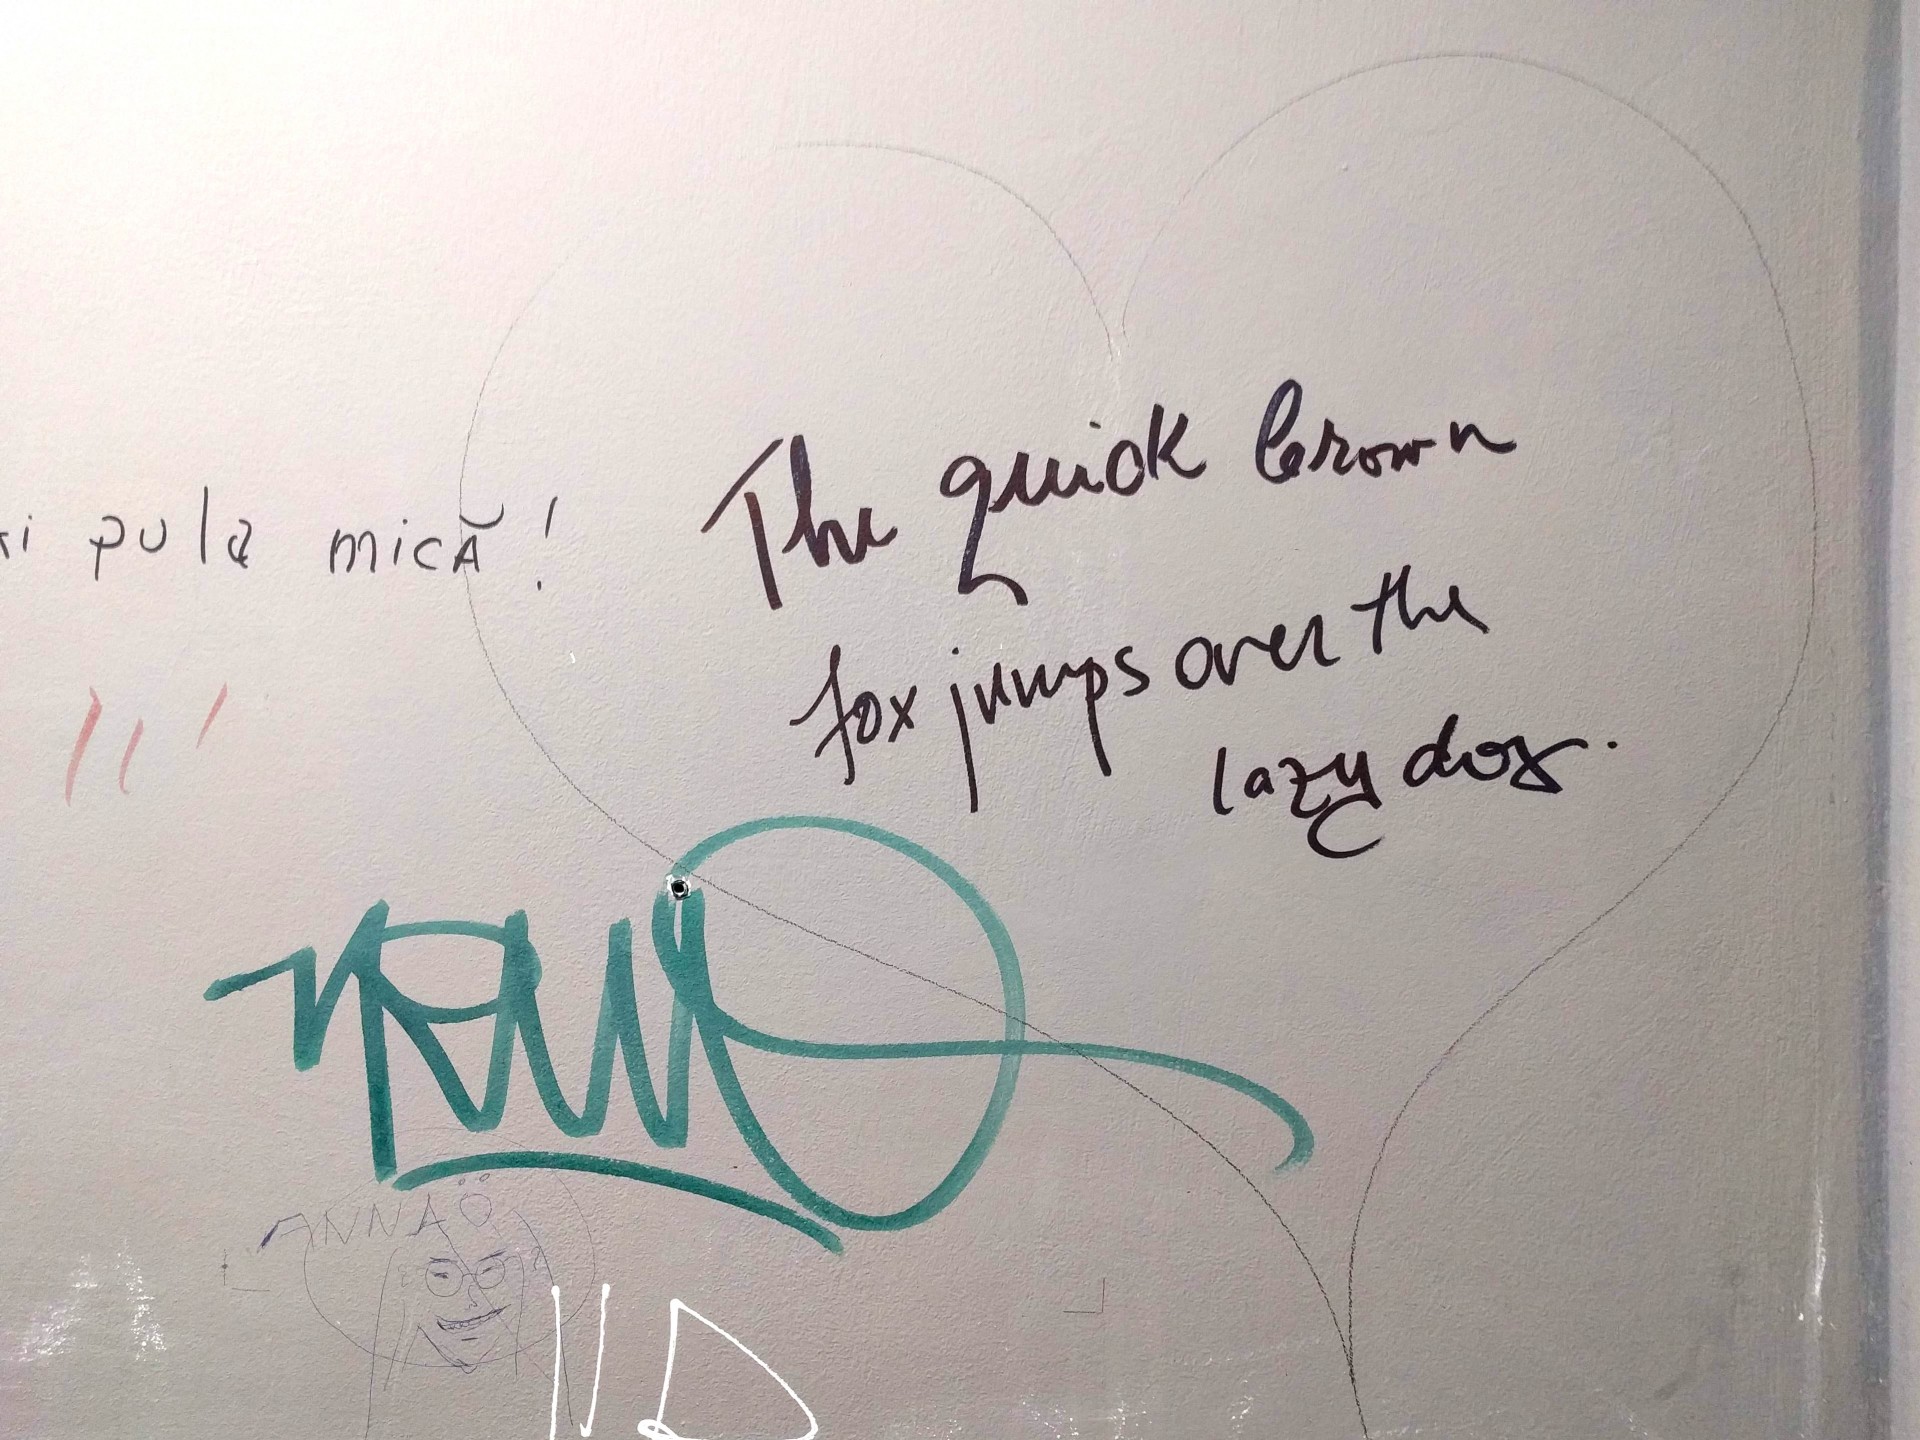 The quick brown
pula mică!
fox jumps over the
lazy dog.
ANNA